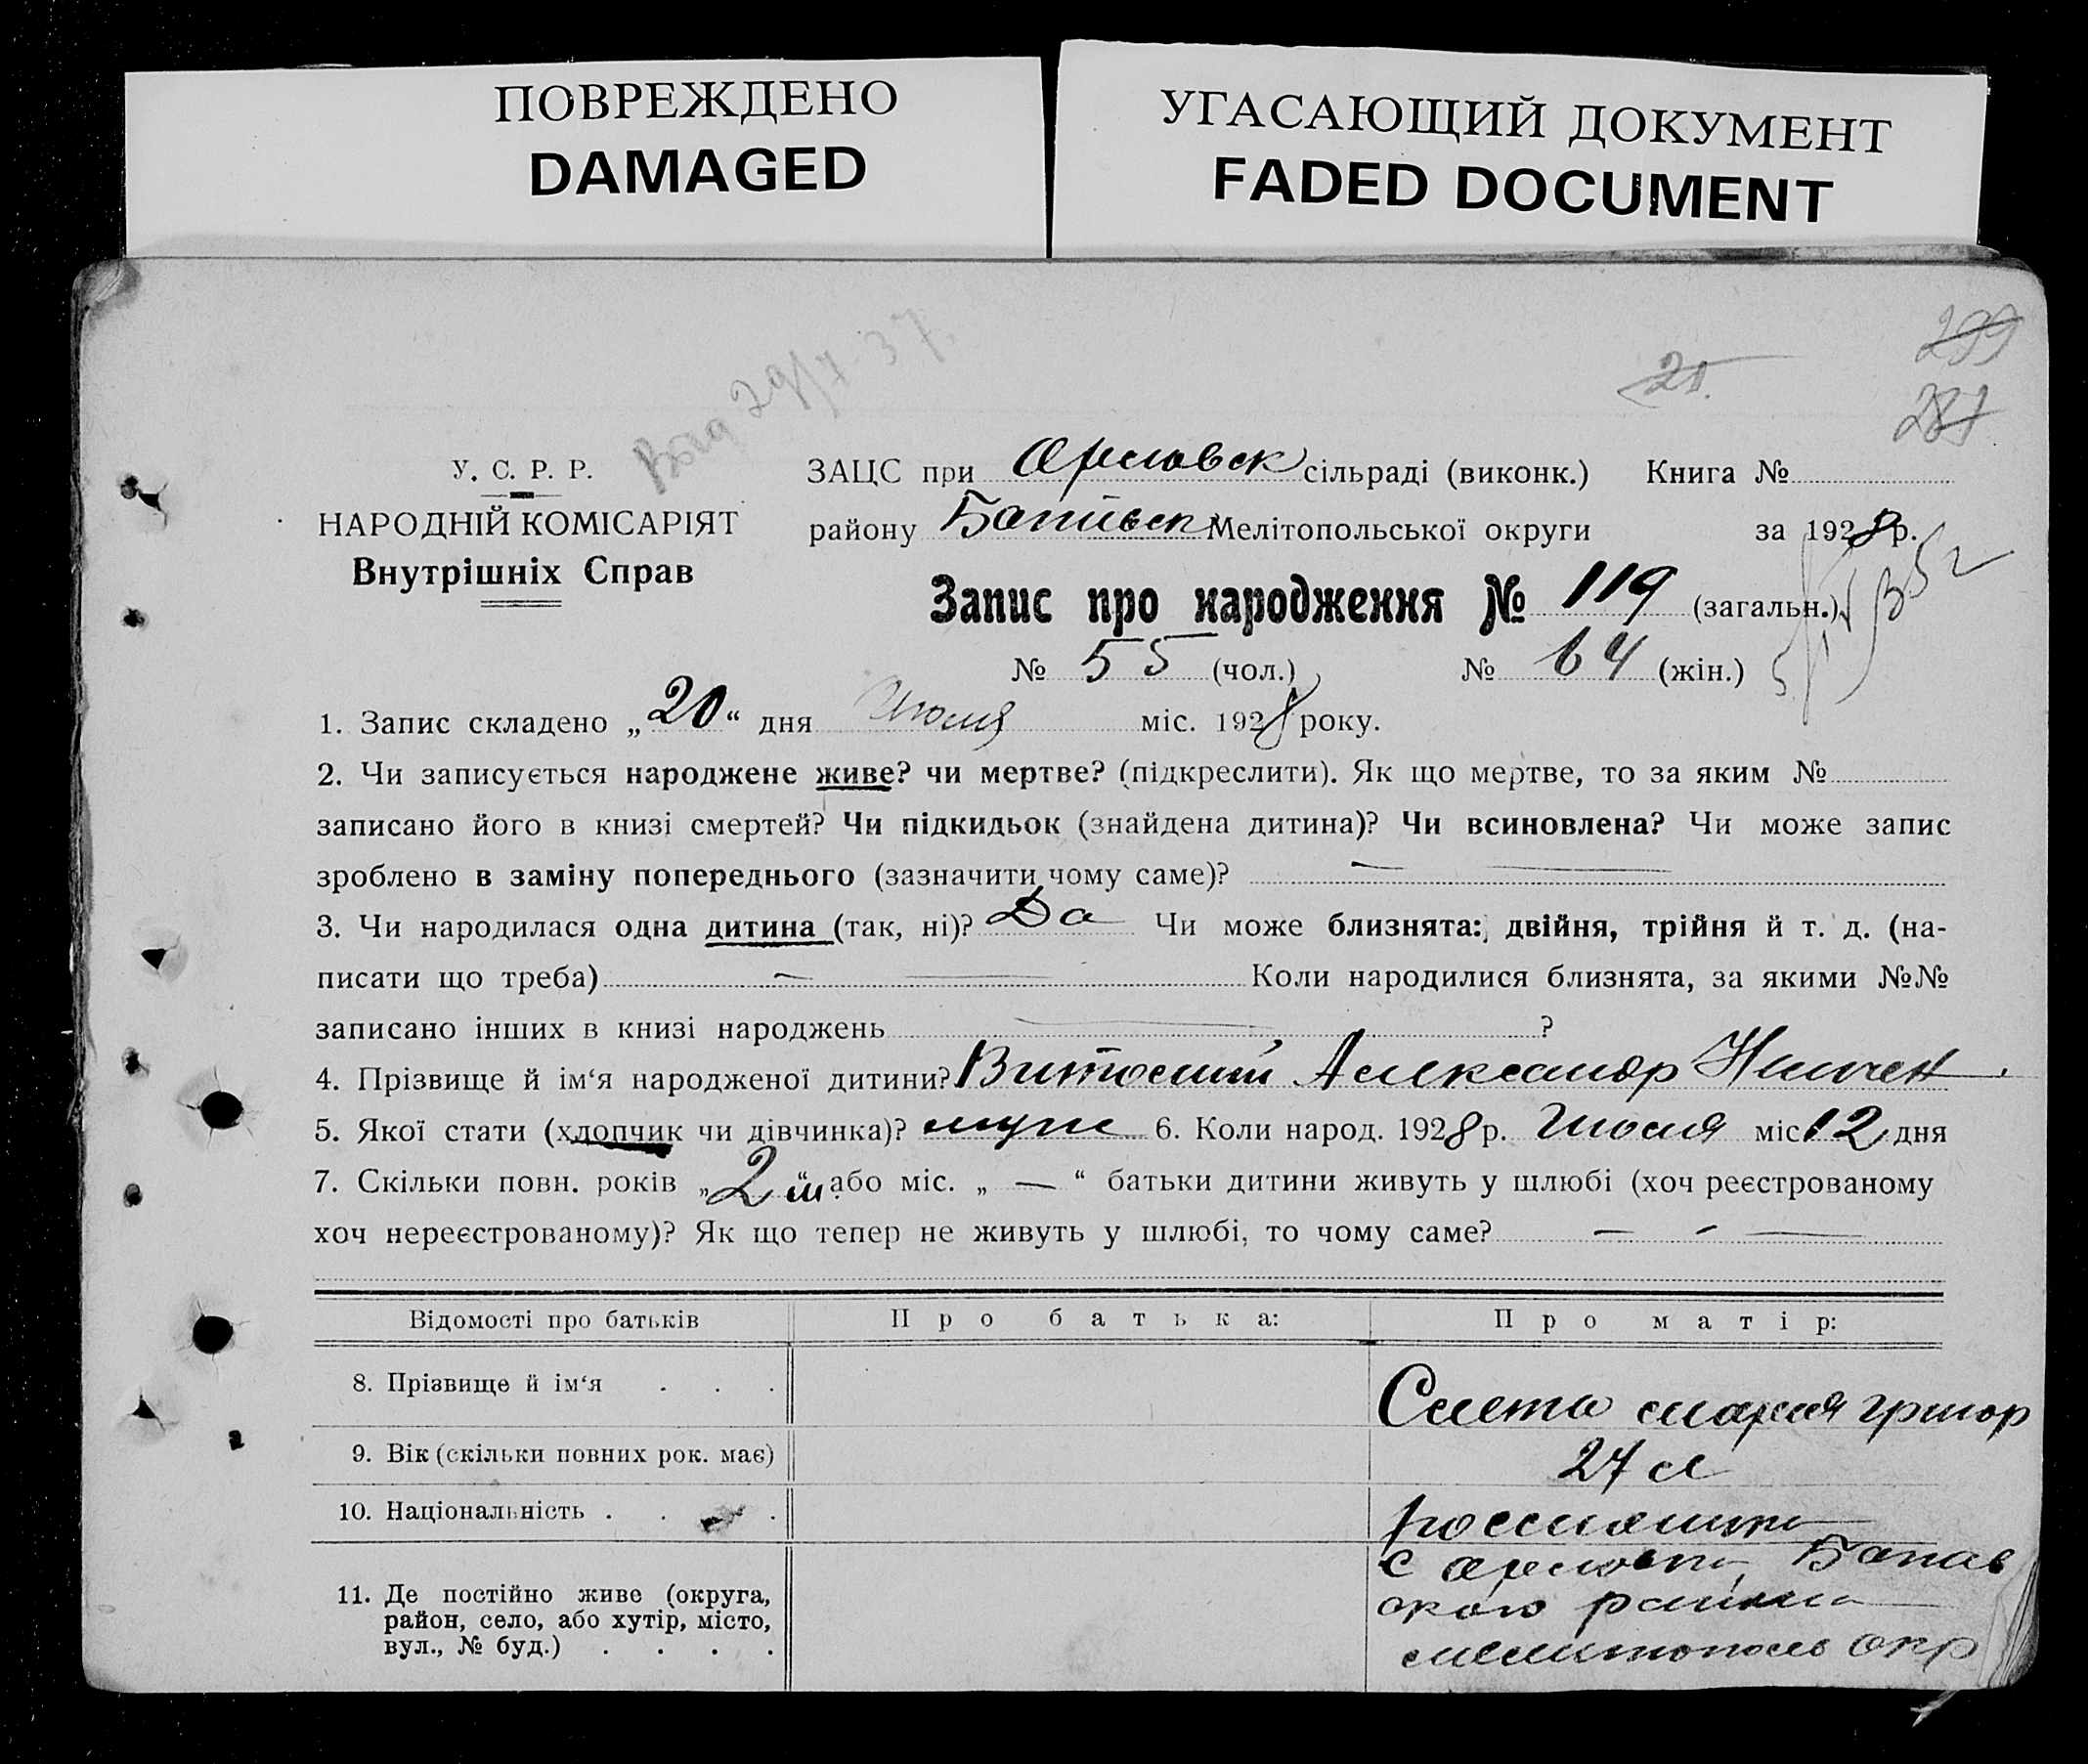 ПОВРЕЖДЕНО
DAMAGED
УГАСАЮЩИЙ ДОКУМЕНТ
FADED DOCUMENT
29/7-37.
20.
299
287
У. С. Р. Р.
НАРОДНІЙ КОМІСАРІЯТ
Внутрішніх Справ
ЗАЦС при Орловск сільраді (виконк.) Книга №
району Мелітопольської округи за 1928 р.
Запис про народження № 119 (загальн.)
№ 55 (чол.) № 64 (жін.)
1. Запис складено „20“ дня Июля міс. 1928 року.
2. Чи записується народжене живе? чи мертве? (підкреслити). Як що мертве, то за яким №
записано його в книзі смертей? Чи підкидьок (знайдена дитина)? Чи всиновлена? Чи може запис
зроблено в заміну попереднього (зазначити чому саме)? —
3. Чи народилася одна дитина (так, ні)? Да Чи може близнята: двійня, трійня й т. д. (на-
писати що треба) — Коли народилися близнята, за якими №№
записано інших в книзі народжень — ?
4. Прізвище й ім‘я народженої дитини? Александр
5. Якої стати (хлопчик чи дівчинка)? муж 6. Коли народ. 1928 р. Июля міс 12 дня
7. Скільки повн. років „2“ або міс. „ — “ батьки дитини живуть у шлюбі (хоч реєстрованому
хоч нереєстрованому)? Як що тепер не живуть у шлюбі, то чому саме? — - —
Відомості про батьків
Про батька:
Про матір:
8. Прізвище й ім‘я . . .
Смета мария григор
9. Вік (скільки повних рок. має)
27 л
10. Національність . . .
россиянка
11. Де постійно живе (округа,
район, село, або хутір, місто,
вул., № буд.) . . . .
с орловка
ского района
мелитополь окр